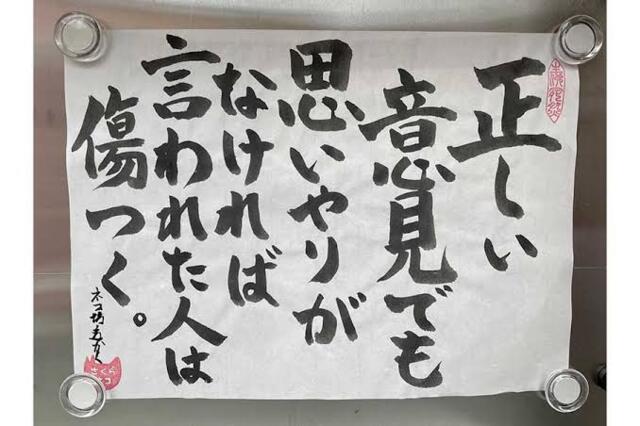 正しい
意見でも
思いやりが
なければ
言われた人は
傷つく。
さくら
ネコ